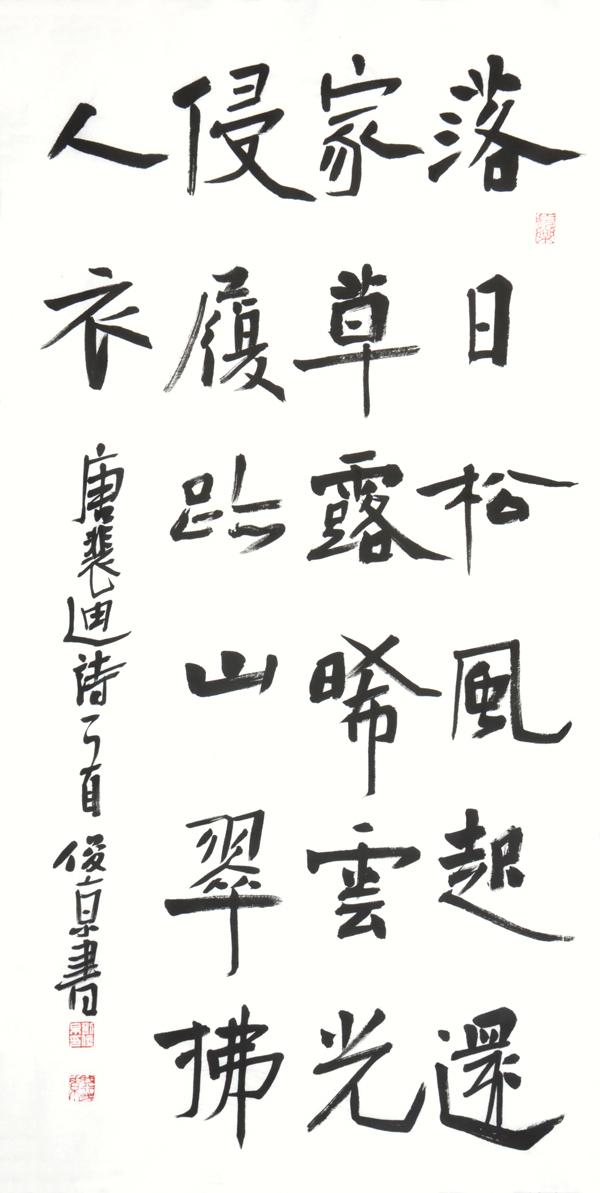 落日松風起還
家草露晞雲光
侵履跡山翠拂
人衣
唐裴迪詩首 俊京書